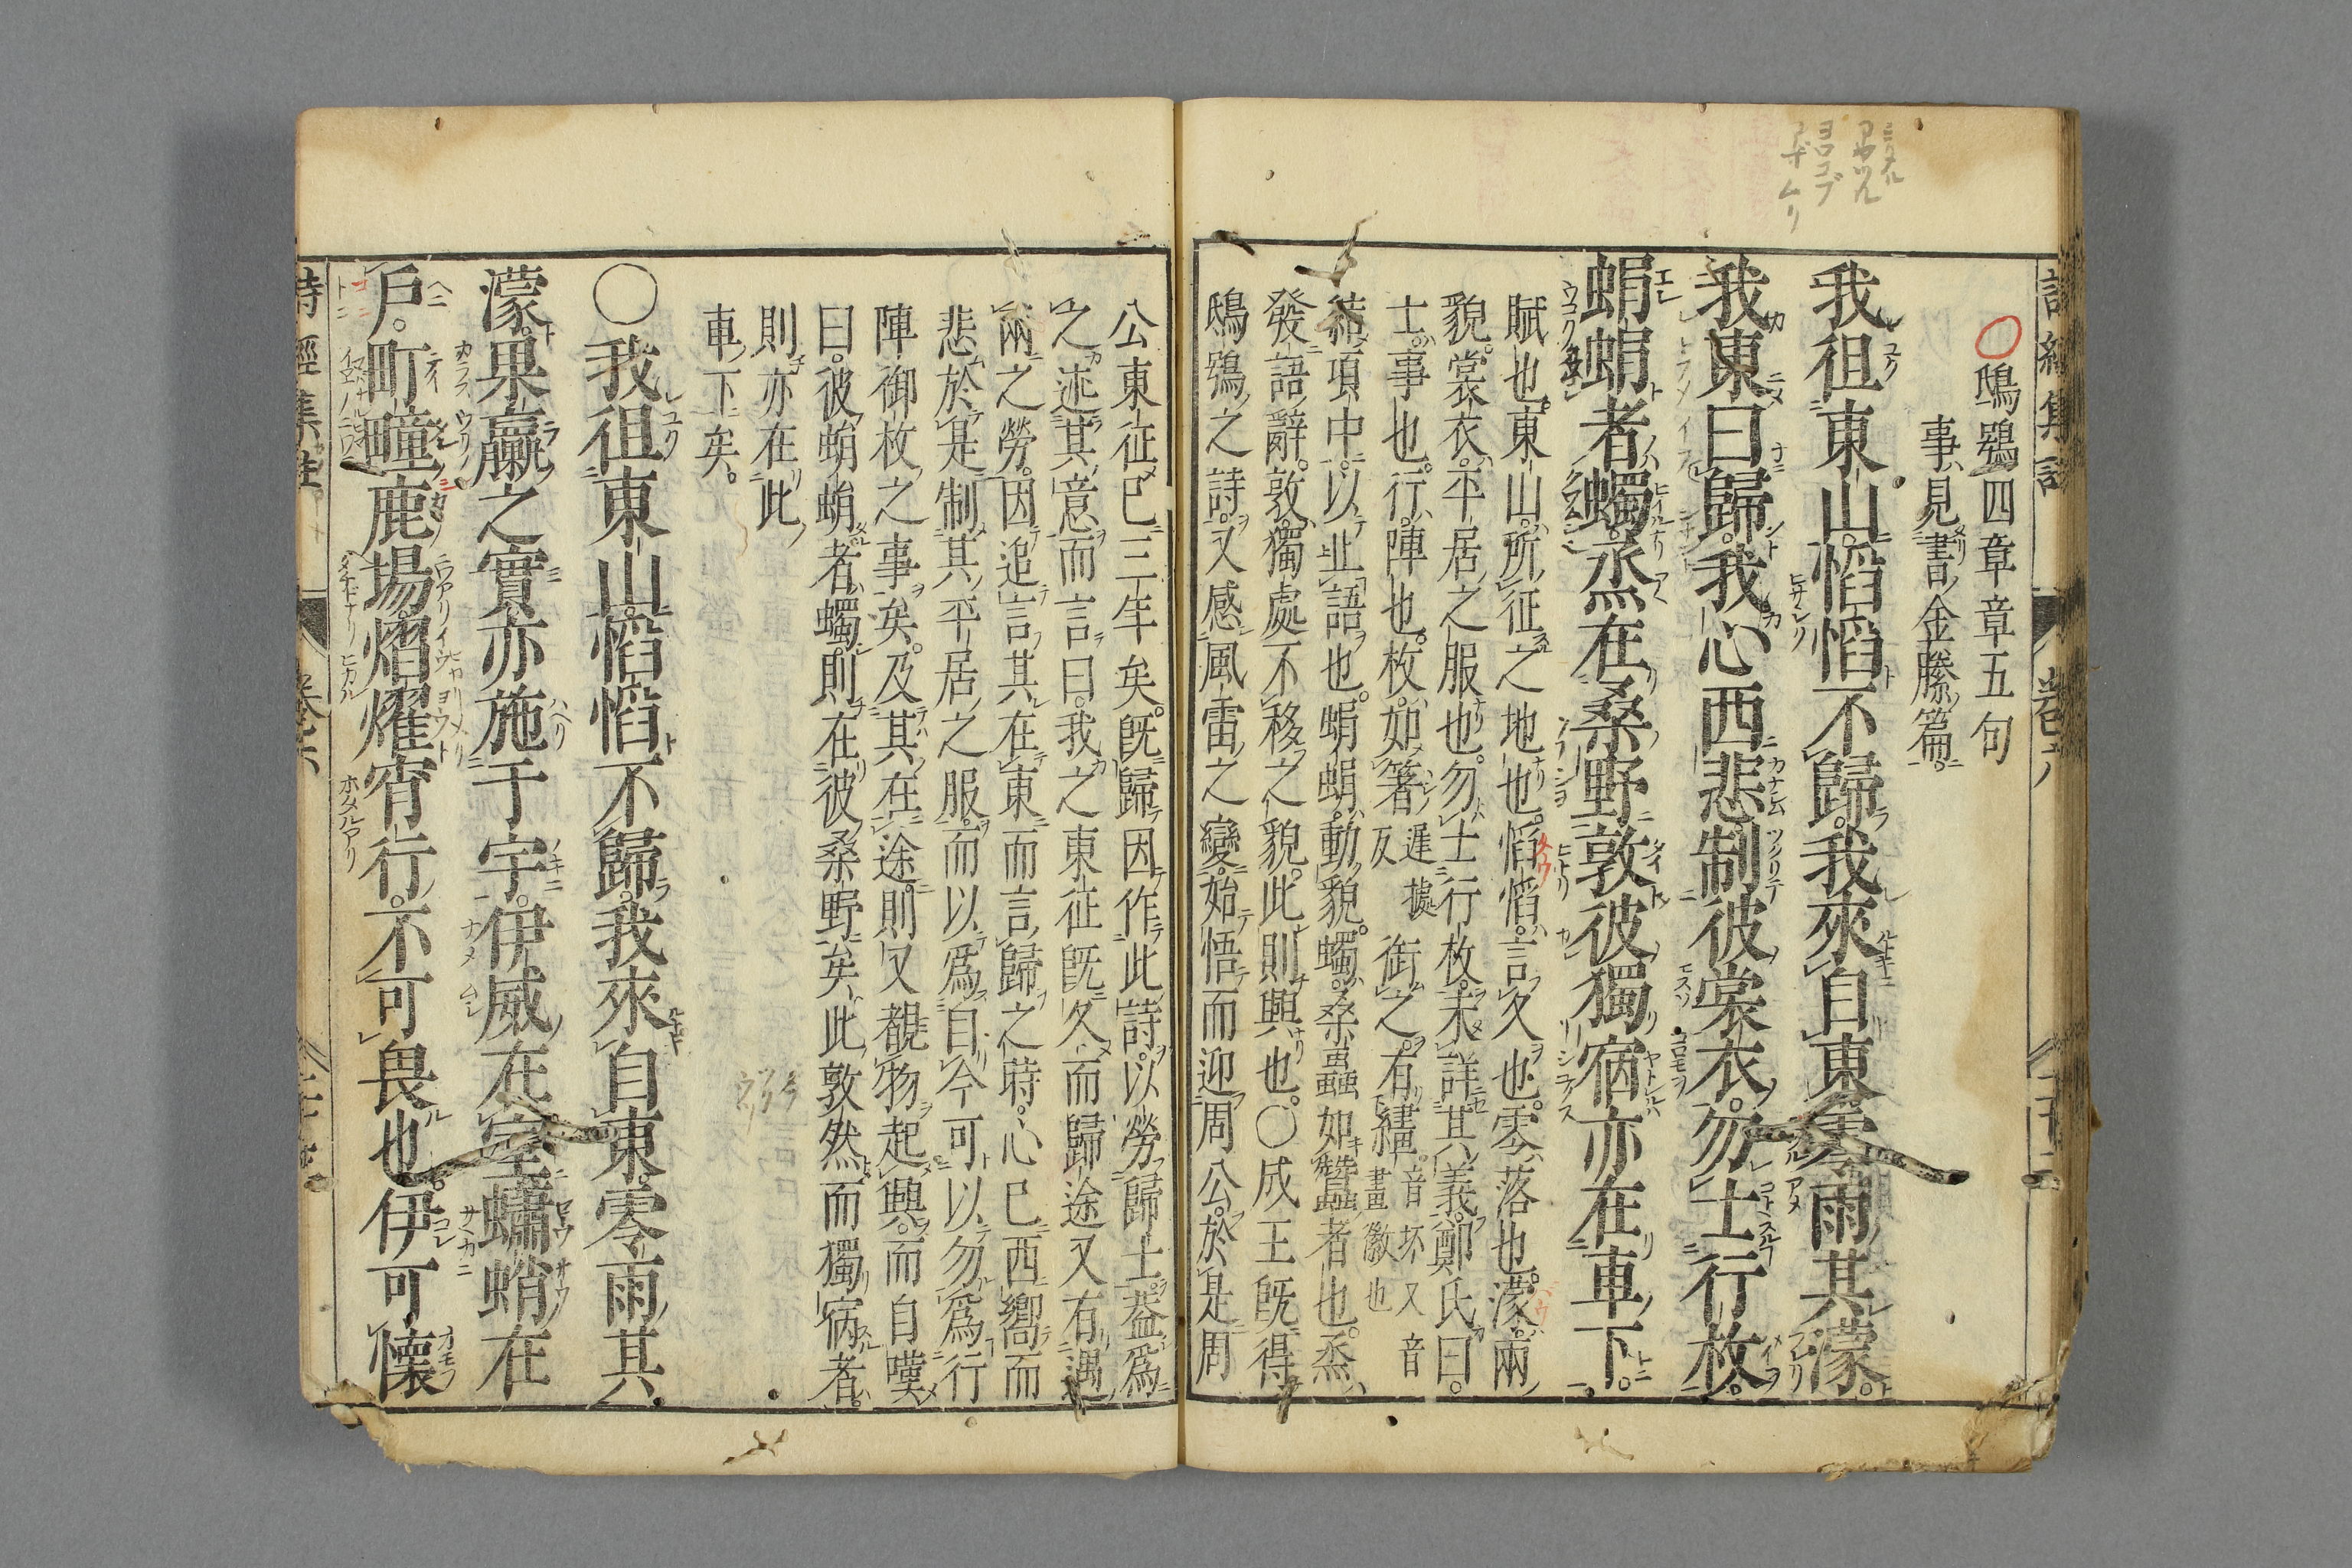 鴟鴞四章章五句
事見書金縢篇。
我徂東山。慆慆不歸。我來自東。零雨其濛。
我東曰歸。我心西悲。制彼裳衣。勿士行枚。
蜎蜎者蠋。烝在桑野。敦彼獨宿。亦在車下。
賦也。東山。所征之地也。慆慆。言久也。零。落也。濛。雨
貌。裳衣。平居之服也。勿士行枚。未詳其義。鄭氏曰。
士。事也。行。陣也。枚。如箸。銜之。有繣。
遲據反
音
畫徽也
音坏又
結項中。以止語也。蜎蜎。動貌。蠋。桑蟲如蠶者也。烝。
發語辭。敦。獨處不移之貌。此則興也。〇成王既得
鴟鴞之詩。又感風雷之變。始悟而迎周公。於是周
公東征已三年矣。既歸因作此詩。以勞歸士。蓋爲
之述其意而言曰。我之東征既久。而歸途又有遇
雨之勞。因追言其在東而言歸之時。心已西嚮而
悲。於是制其平居之服。而以爲自今可以勿爲行
陣御枚之事矣。及其在途。則又覩物起興。而自嘆
曰。彼蜎蜎者蠋。則在彼桑野矣。此敦然而獨宿者。
則亦在此
車下矣。
〇我徂東山。慆慆不歸。我來自東。零雨其
濛。果臝之實。亦施于宇。伊威在室。蠨蛸在
戶。町畽鹿場。熠燿宵行。不可畏也。伊可懷